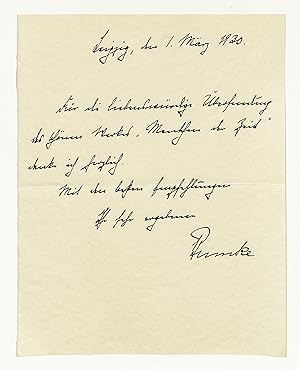 Leipzig, den 1. März 1930.
Für die liebenswürdige Übersendung
des schönen Werkes „Menschen der Zeit“
danke ich herzlich.
Mit den besten Empfehlungen
Ihr sehr ergebener